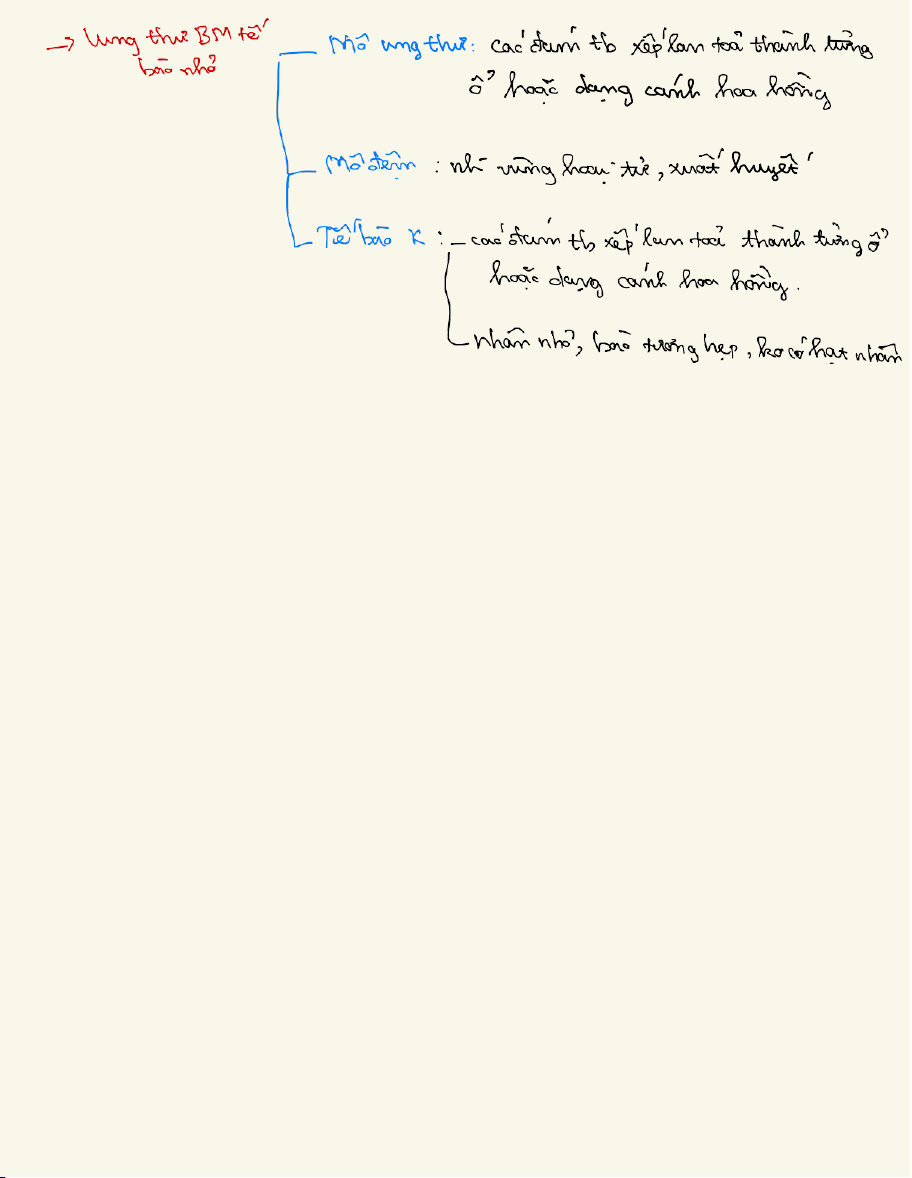 → Ung thư BM tế
bào nhỏ
Mô ung thư: các đám tb xếp lan toả thành từng
ổ hoặc dạng cánh hoa hồng
Mô đệm : nh vùng hoại tử, xuất huyết
Tế bào K : – các đám tb xếp lan toả thành từng ổ
hoặc dạng cánh hoa hồng.
nhân nhỏ, bào tương hẹp, ko có hạt nhân